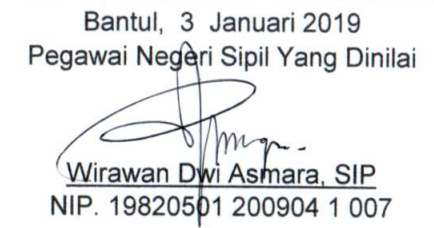 Bantul, 3 Januari 2019
Pegawai Negeri Sipil Yang Dinilai
Wirawan Dwi Asmara, SIP
NIP. 19820501 200904 1 007